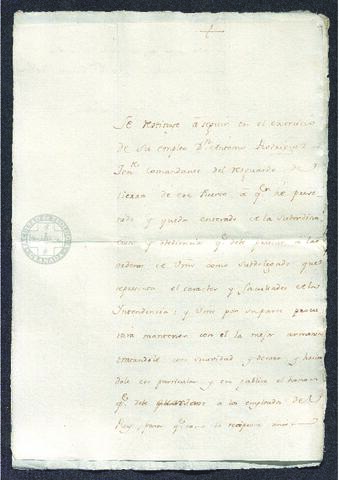 Se restituye a seguir en el exercicio
de su empleo Dn Antonio Rodriguez
Then.te Comandante del resguardo de
tierra de ese Puerto a qn he preve
nido y queda enterado de la subordina
cion y obediencia qe debe prestar a las
ordenes de Vmd como subdelegado que
representa el caracter y facultades de esta
Intendencia; y Vmd por su parte procu
rara mantener con el la mejor armonia
tratandole con suavidad y decoro y hacien
dole en particular y en publico el honor
qe debe guardarse a los empleados del
Rey, para qe